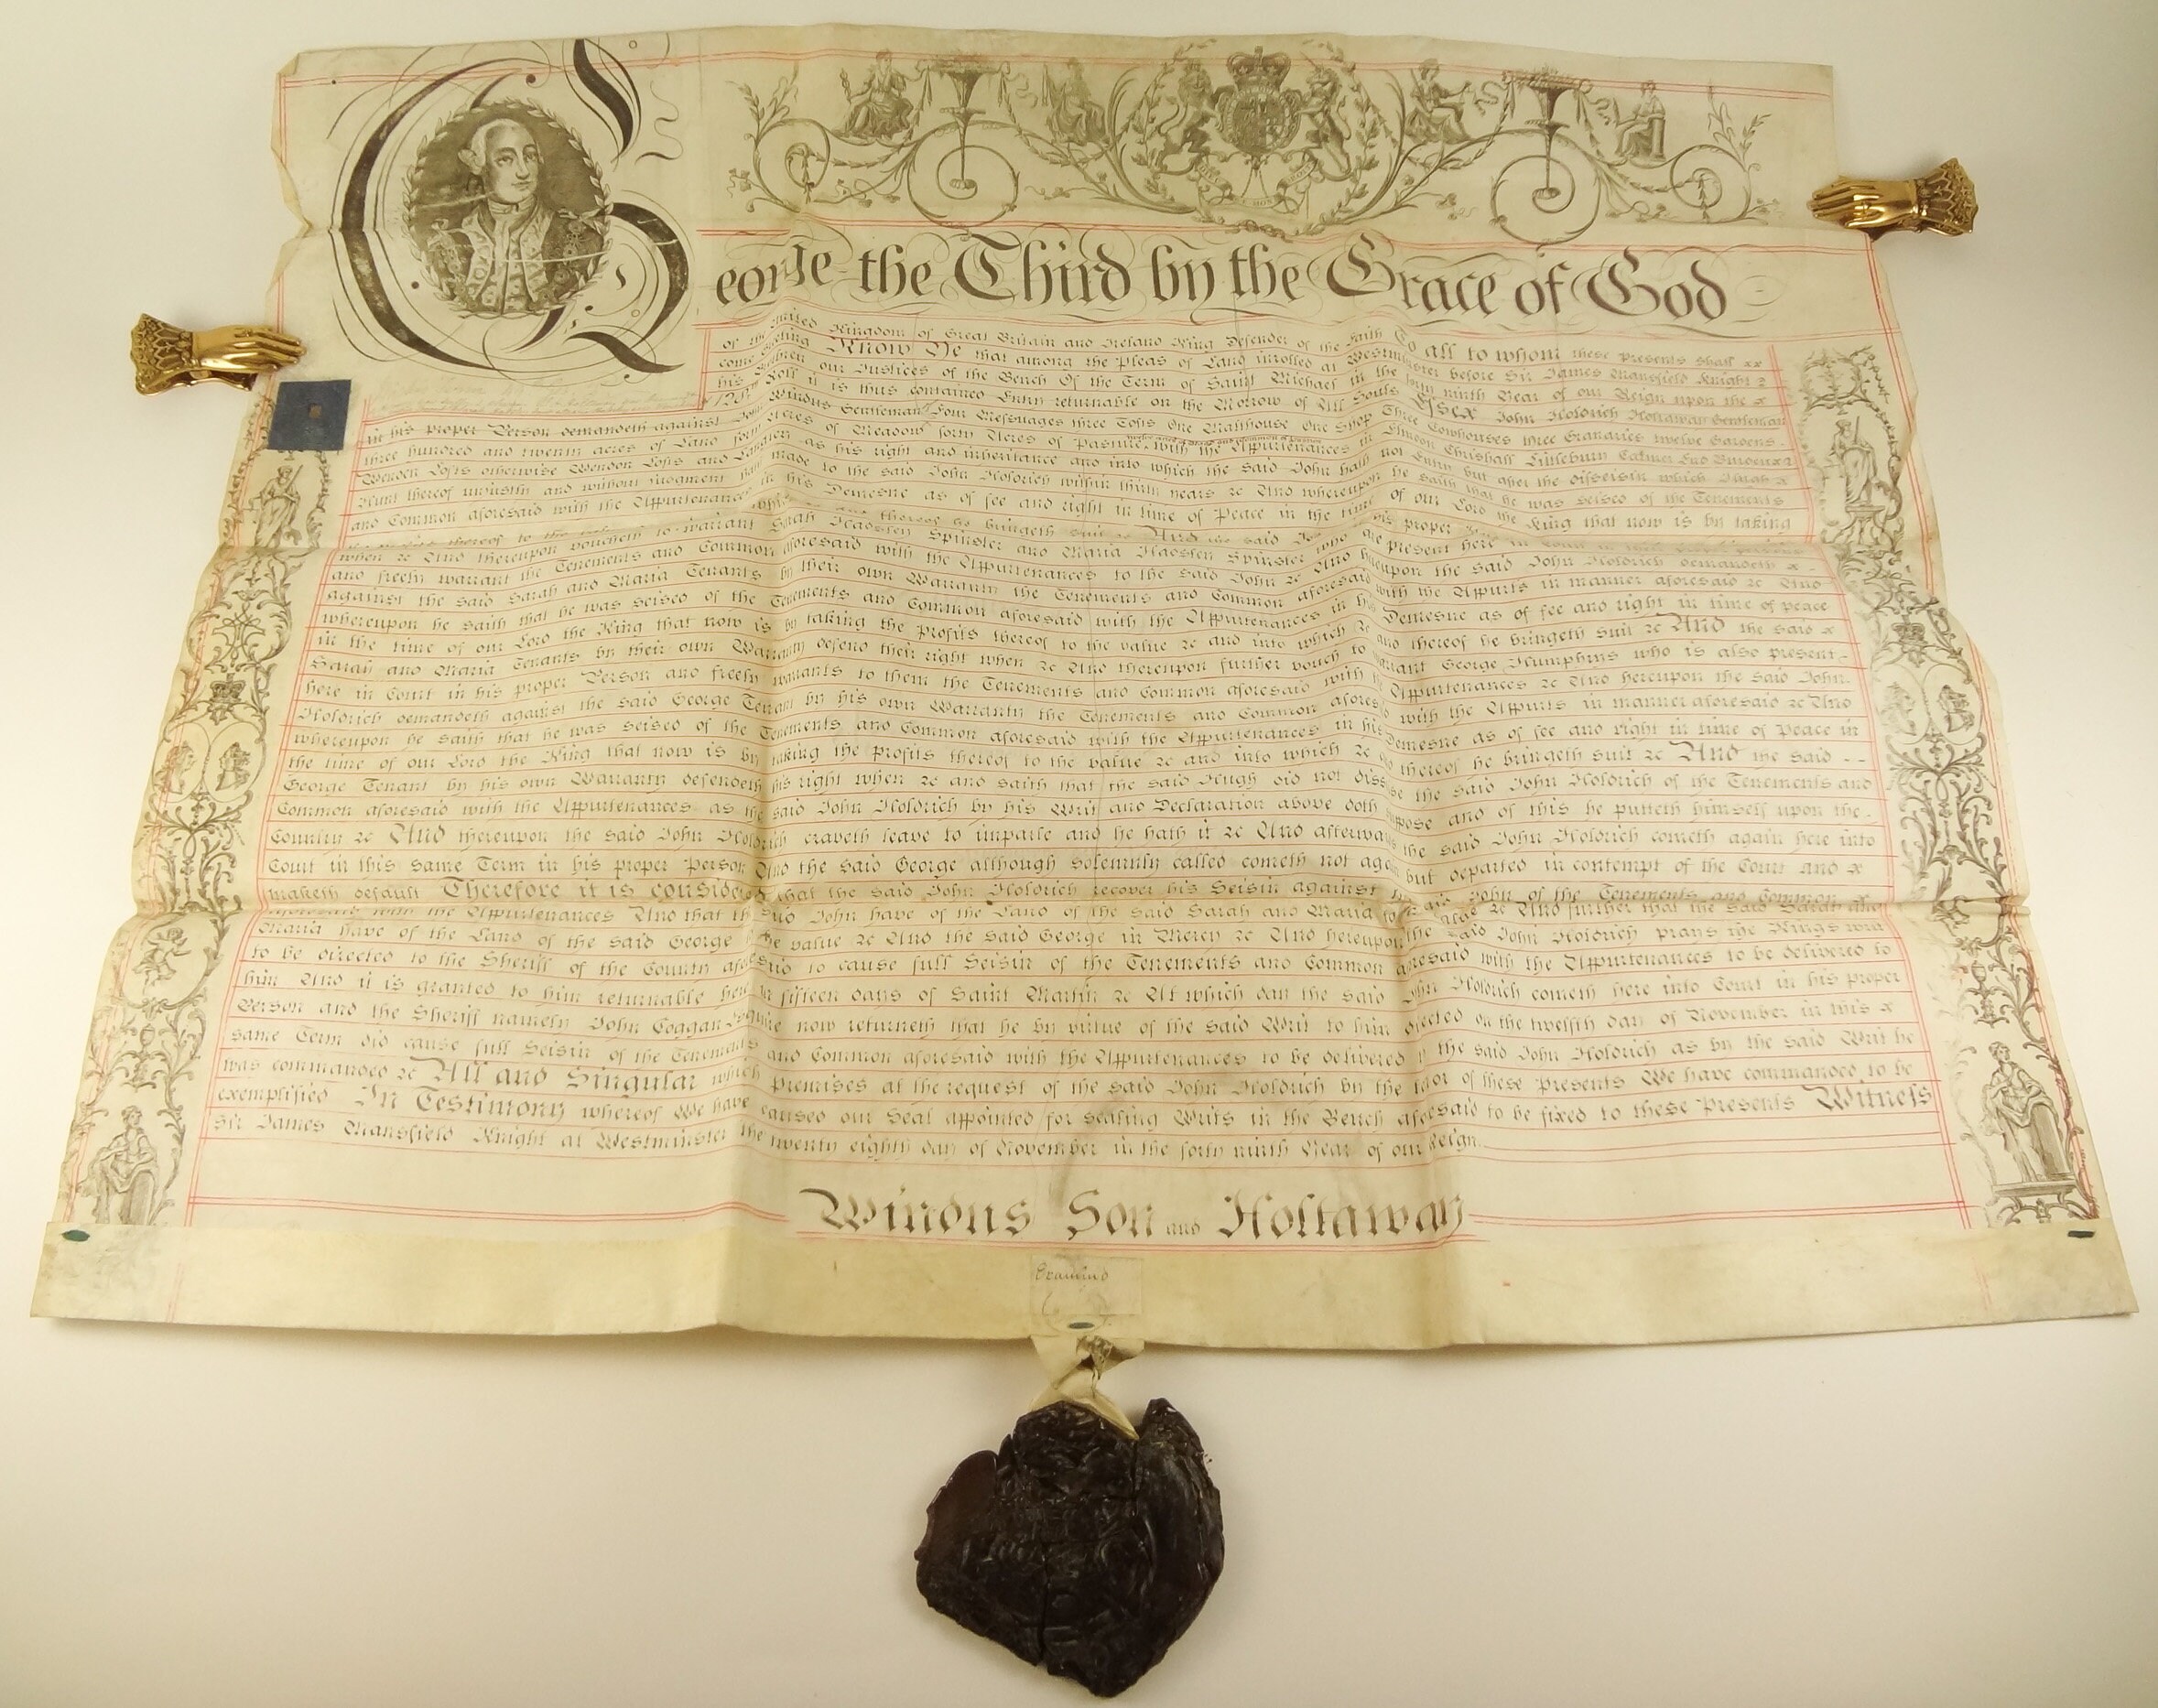 George the Third by the Grace of God
of the United Kingdom of Great Britain and Ireland King Defender of the Faith To all to whom these presents shall
come Greeting Know Ye that among the Pleas of Land inrolled at Westminster before Sir James Mansfield Knight
his Brethren our Justices of the Bench Of the Term of Saint Michael in the forty ninth Year of our Reign upon the
Roll it is thus contained Entry returnable on the Morrow of All Souls Essex John Holdrich Holtaway Gentleman
in his proper Person demandeth against John Windus Gentleman Four Messuages three Tofts One Malthouse One Shop Three Cowhouses three Granaries twelve Gardens
three hundred and twenty acres of Land forty Acres of Meadow forty Acres of Pasture with the Appurtenances in Elmdon Chrishall Littlebury
Wenden Lofts otherwise Wendon Lofts and as his right and inheritance and into which the said John hath not Entry but after the disseisin which Hugh
Hunt thereof unjustly and without judgment hath made to the said John Holdrich within thirty years &c And whereupon he saith that he was seised of the Tenements
and Common aforesaid with the Appurtenances in his Demesne as of fee and right in time of Peace in the time of our Lord the King that now is by taking
thereof to the and thereof he bringeth suit &c And the said John in his proper
when &c And thereupon voucheth to warrant Sarah Spinster and Maria Spinster who are present here in Court
and freely warrant the Tenements and Common aforesaid with the Appurtenances to the said John &c And hereupon the said John Holdrich demandeth
against the said Sarah and Maria Tenants by their own Warranty the Tenements and Common aforesaid with the Appurts in manner aforesaid &c And
whereupon he saith that he was seised of the Tenements and Common aforesaid with the Appurtenances in his Demesne as of fee and right in time of peace
in the time of our Lord the King that now is by taking the profits thereof to the value &c and into which &c and thereof he bringeth suit &c And the said
Sarah and Maria Tenants by their own Warranty defend their right when &c And thereupon further vouch to warrant George Humphrys who is also present
here in Court in his proper Person and freely warrants to them the Tenements and Common aforesaid with the Appurtenances &c And hereupon the said John
Holdrich demandeth against the said George Tenant by his own Warranty the Tenements and Common aforesaid with the Appurts in manner aforesaid &c And
whereupon he saith that he was seised of the Tenements and Common aforesaid with the Appurtenances in his Demesne as of fee and right in time of Peace in
the time of our Lord the King that now is by taking the profits thereof to the value &c and into which &c and thereof he bringeth suit &c And the said
George Tenant by his own Warranty defendeth his right when &c and saith that the said Hugh did not disseise the said John Holdrich of the Tenements and
Common aforesaid with the Appurtenances as the said John Holdrich by his Writ and Declaration above doth suppose and of this he putteth himself upon the
Country &c And thereupon the said John Holdrich craveth leave to imparle and he hath it &c And afterwards the said John Holdrich cometh again here into
Court in this same Term in his proper Person And the said George although solemnly called cometh not again but departed in contempt of the Court and
maketh default Therefore it is considered that the said John Holdrich recover his Seisin against the said John of the Tenements and Common
aforesaid with the Appurtenances And that the said John have of the Land of the said Sarah and Maria to the value &c And further that the said Sarah and
Maria have of the Land of the said George to the value &c And the said George in Mercy &c And hereupon the said John Holdrich prays the Kings writ
to be directed to the Sheriff of the County aforesaid to cause full Seisin of the Tenements and Common aforesaid with the Appurtenances to be delivered to
him And it is granted to him returnable here in fifteen days of Saint Martin &c At which day the said John Holdrich cometh here into Court in his proper
Person and the Sheriff namely John Coggan Esquire now returneth that he by virtue of the said Writ to him directed on the twelfth day of November in this
same Term did cause full Seisin of the Tenements and Common aforesaid with the Appurtenances to be delivered to the said John Holdrich as by the said Writ he
was commanded &c All and Singular which premises at the request of the said John Holdrich by the tenor of these Presents We have commanded to be
exemplified In Testimony whereof We have caused our Seal appointed for sealing Writs in the Bench aforesaid to be fixed to these Presents Witness
Sir James Mansfield Knight at Westminster the twenty eighth day of November in the forty ninth Year of our Reign
Windus Son and Holtaway
Examined